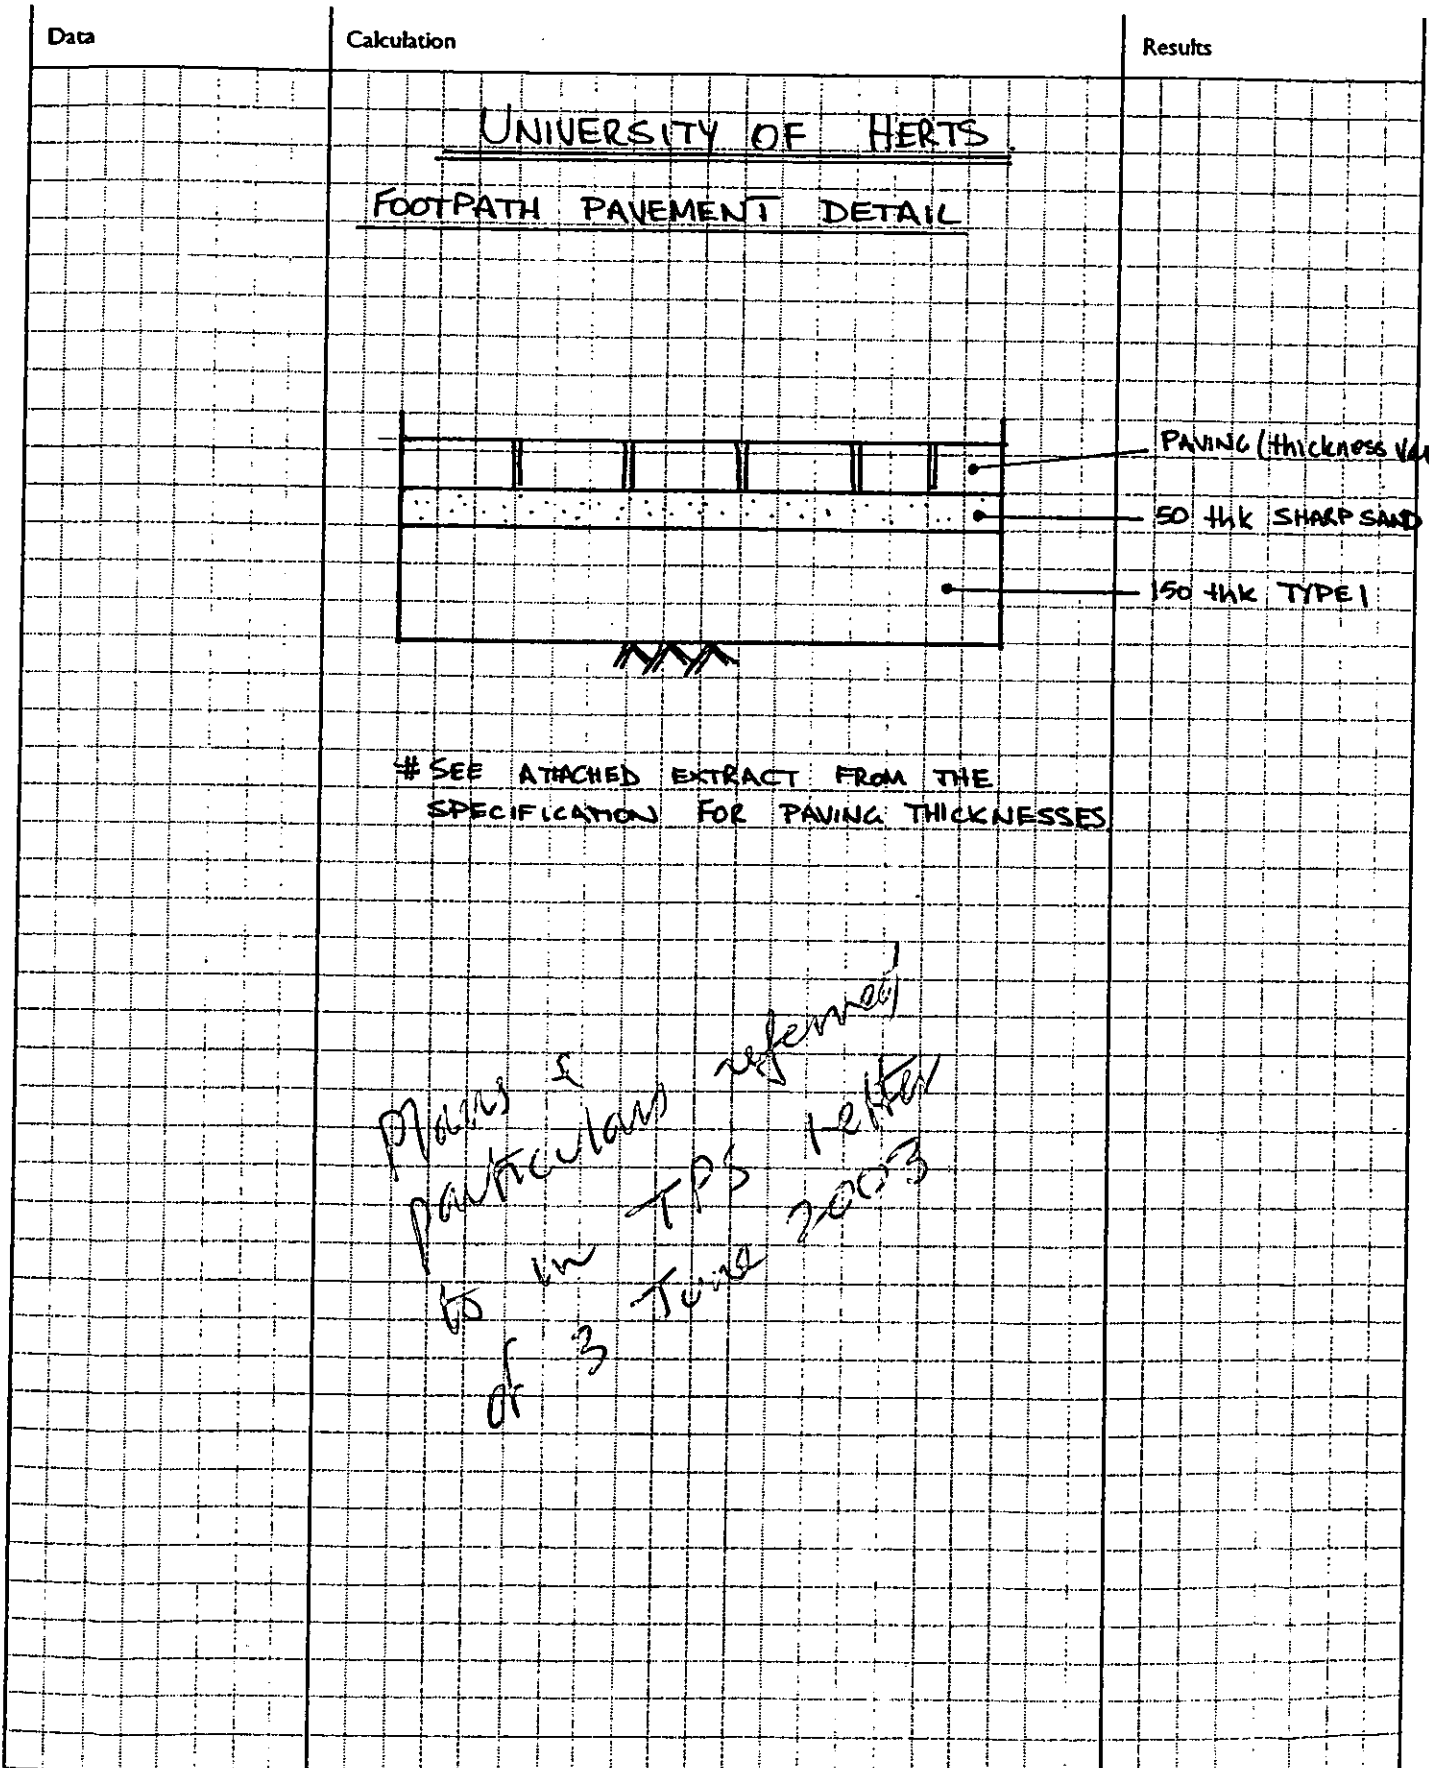 Data
Calculation
Results
UNIVERSITY OF HERTS
FOOTPATH PAVEMENT DETAIL
PAVING (thickness
50 thk SHARP SAND
150 thk TYPE 1
# SEE ATTACHED EXTRACT FROM THE
SPECIFICATION FOR PAVING THICKNESSES
Plans &
particulars referred
to in TPS letter
of 3 June 2003